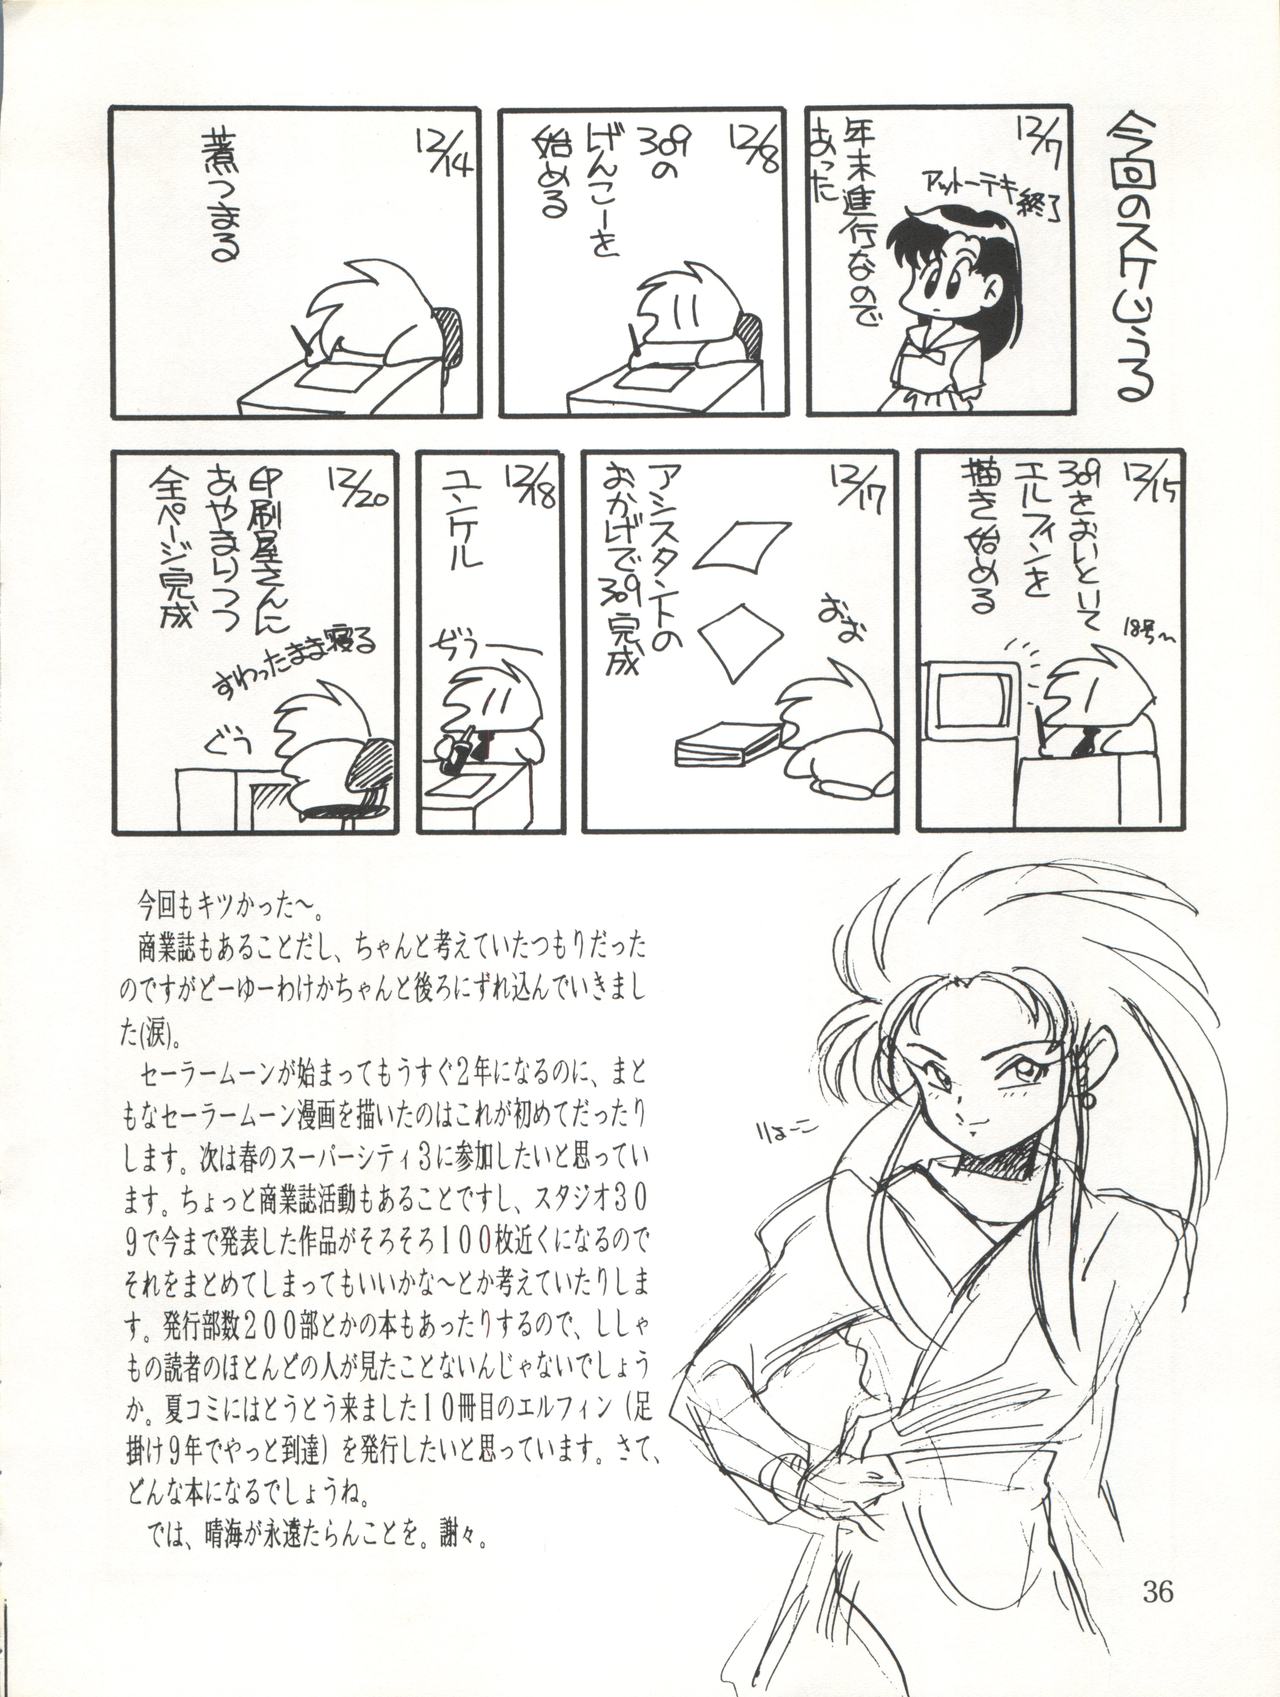 今回のスケじうる
12/7
年末進行なので
あった
アットーテキ
終了
12/8
309の
げんこーを
始める
12/14
煮つまる
12/15
309をおいといて
エルフィンを
描き始める
18号〜
12/17
アシスタントの
おかげで309完成
おお
12/18
ユンケル
ぢぅー
12/20
印刷屋さんに
あやまりつつ
全ページ完成
すわったまま寝る
ぐぅ
今回もキツかった〜。
商業誌もあることだし、ちゃんと考えていたつもりだった
のですがどーゆーわけかちゃんと後ろにずれ込んでいきまし
た(涙)。
セーラームーンが始まってもうすぐ2年になるのに、まと
もなセーラームーン漫画を描いたのはこれが初めてだったり
します。次は春のスーパーシティ3に参加したいと思ってい
ます。ちょっと商業誌活動もあることですし、スタジオ30
9で今まで発表した作品がそろそろ100枚近くになるので
それをまとめてしまってもいいかな〜とか考えていたりしま
す。発行部数200部とかの本もあったりするので、ししゃ
もの読者のほとんどの人が見たことないんじゃないでしょう
か。夏コミにはとうとう来ました10冊目のエルフィン（足
掛け9年でやっと到達）を発行したいと思っています。さて、
どんな本になるでしょうね。
では、晴海が永遠たらんことを。謝々。
りょーこ
36